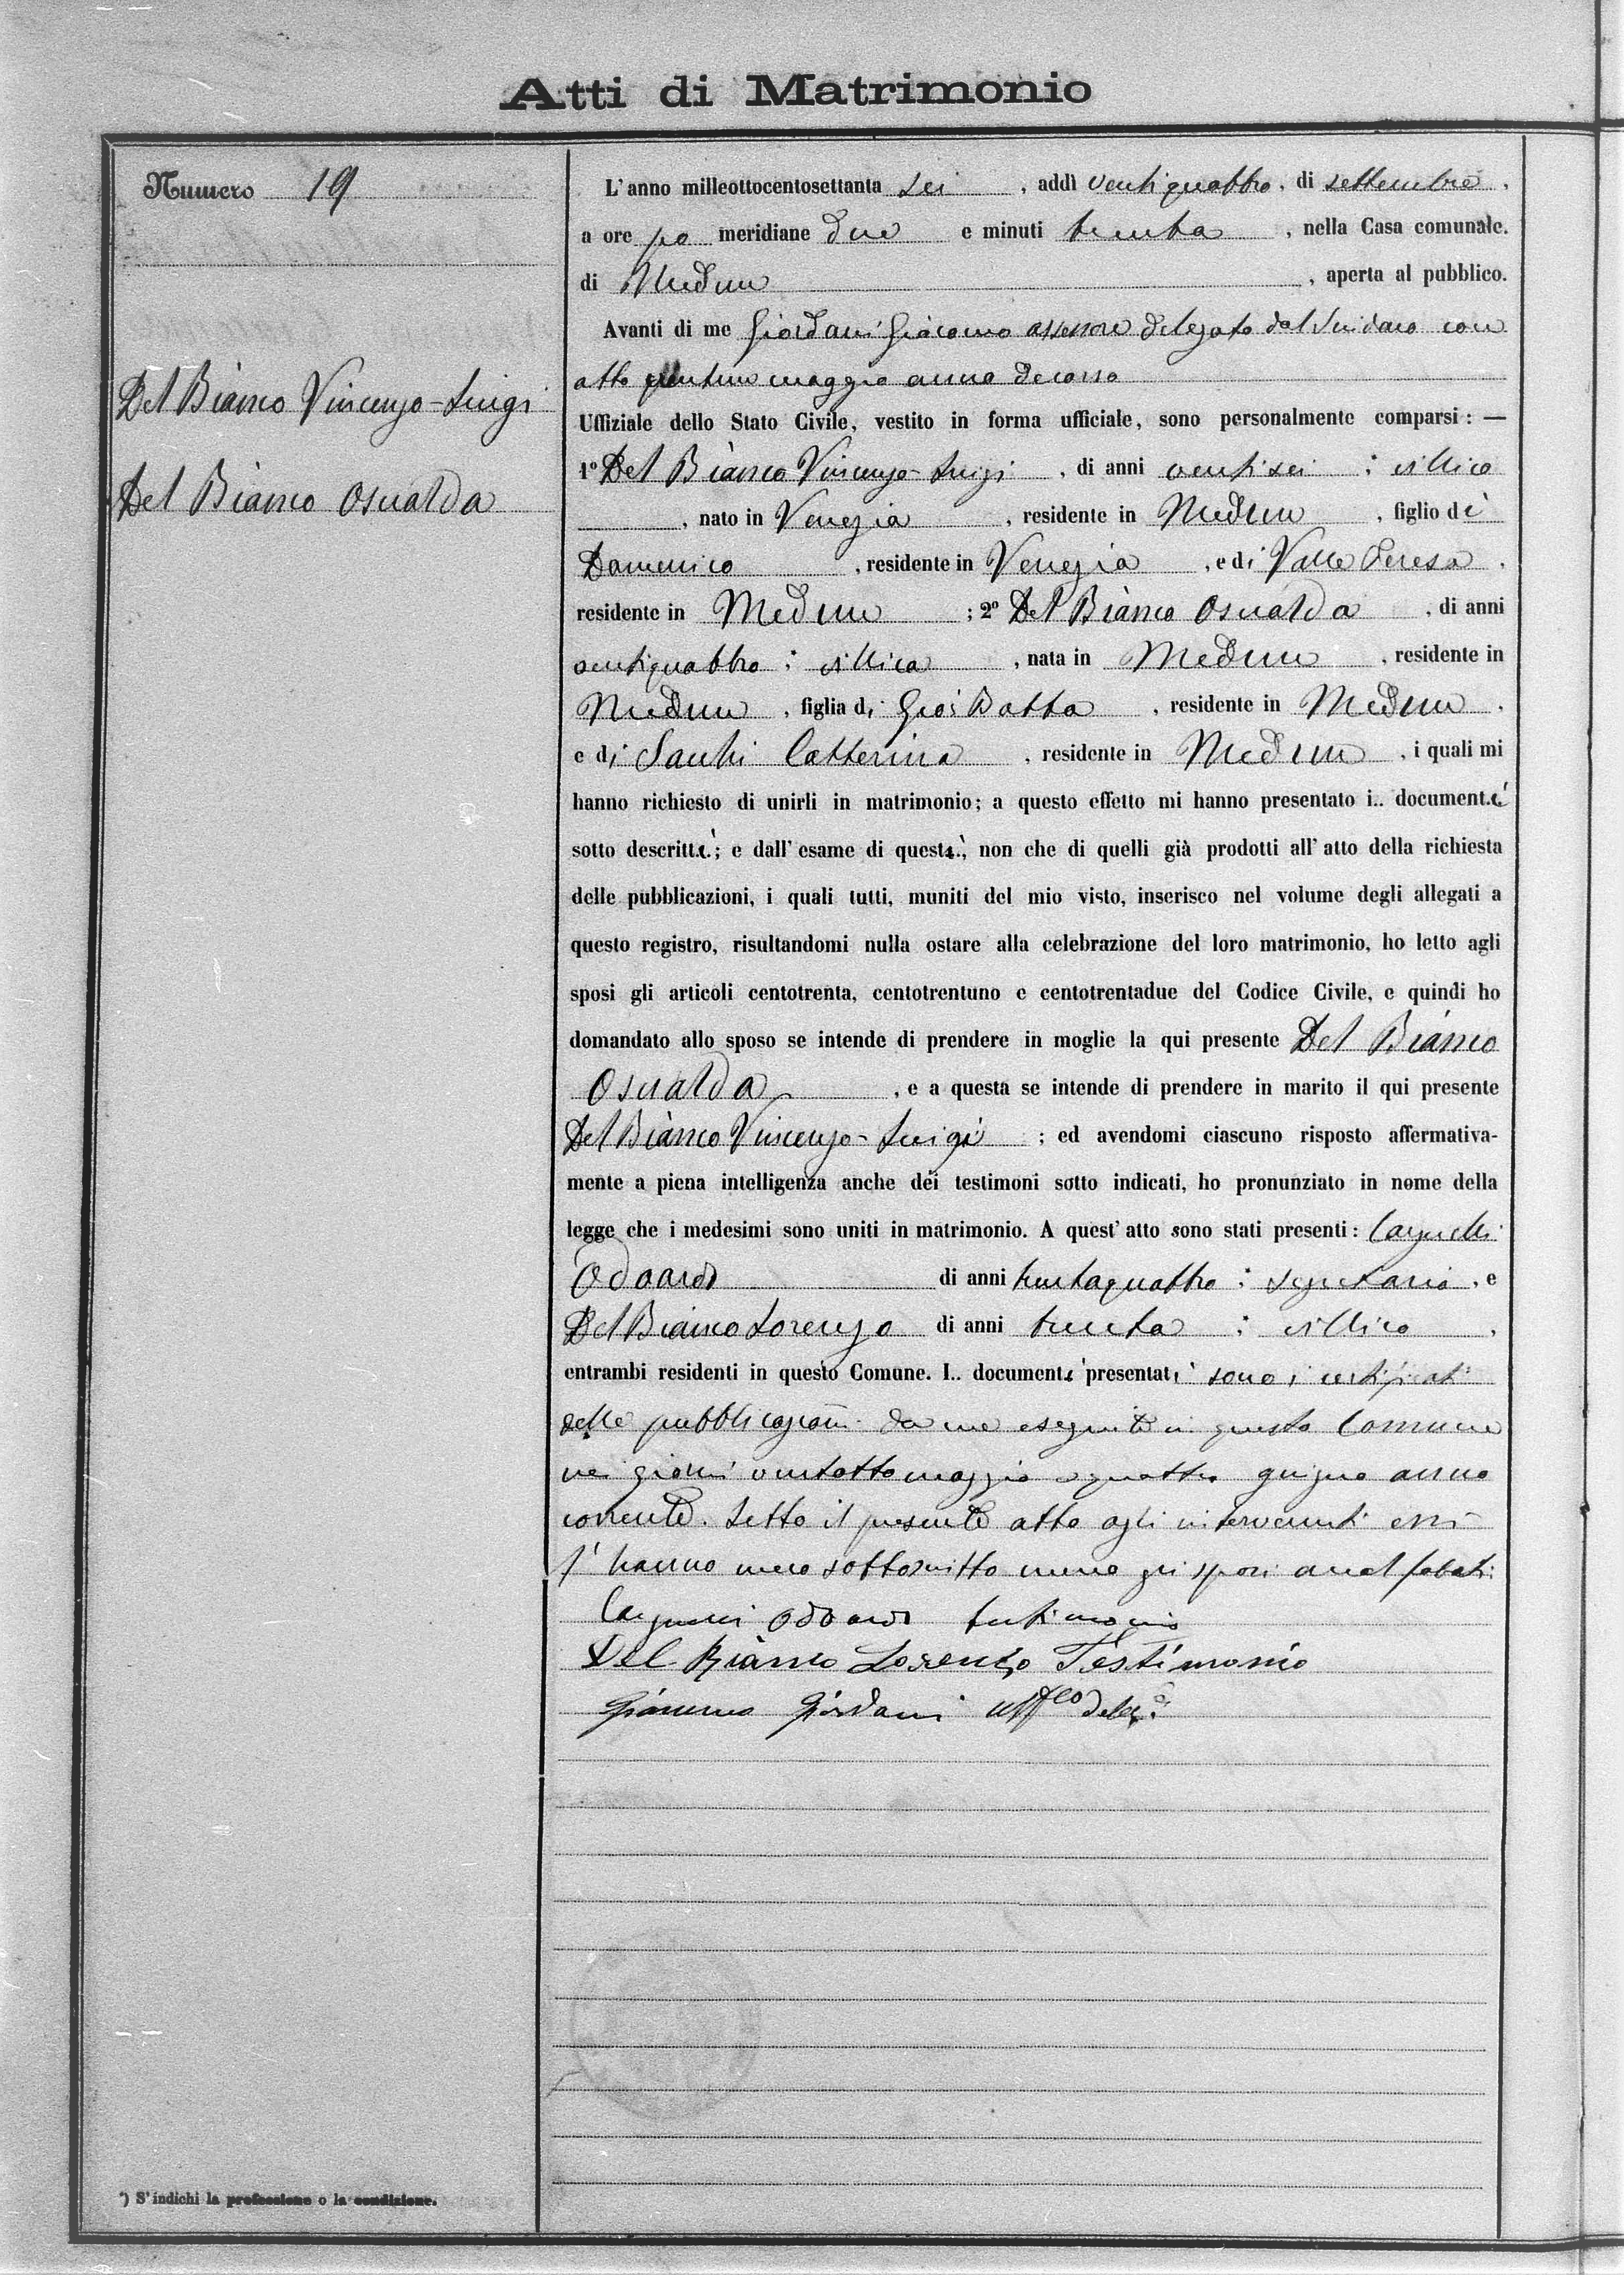 Atti di Matrimonio
Numero 19
Del Biànco Vincenzo-Luigi
Del Biànco Osualda
L'anno milleottocentosettanta sei, addì ventiquattro, di settembre,
a ore po meridiane due e minuti trenta, nella Casa comunale.
di Medun, aperta al pubblico.
Avanti di me Giordani Giacomo assessore delegato dal Sindaco con
atto maggio anno decorso
Uffiziale dello Stato Civile, vestito in forma ufficiale, sono personalmente comparsi: —
1º Del Biànco Vincenzo-Luigi, di anni ventisei; villico
, nato in Venezia, residente in Medun, figlio di
Domenico, residente in Venezia, e di Valle Teresa,
residente in Medun; 2º Del Biànco Osualda, di anni
ventiquattro; villica, nata in Medun, residente in
Medun, figlia di Gio: Batta, residente in Medun,
e di Catterina, residente in Medun, i quali mi
hanno richiesto di unirli in matrimonio; a questo effetto mi hanno presentato i.. documenti
sotto descritti; e dall' esame di questi, non che di quelli già prodotti all' atto della richiesta
delle pubblicazioni, i quali tutti, muniti del mio visto, inserisco nel volume degli allegati a
questo registro, risultandomi nulla ostare alla celebrazione del loro matrimonio, ho letto agli
sposi gli articoli centotrenta, centotrentuno e centotrentadue del Codice Civile, e quindi ho
domandato allo sposo se intende di prendere in moglie la qui presente Del Biànco
Osualda, e a questa se intende di prendere in marito il qui presente
Del Biànco Vincenzo-Luigi; ed avendomi ciascuno risposto affermativa-
mente a piena intelligenza anche dei testimoni sotto indicati, ho pronunziato in nome della
legge che i medesimi sono uniti in matrimonio. A quest' atto sono stati presenti:
Odoardo di anni trentaquattro; segretario, e
Del Bianco Lorenzo di anni trenta; villico,
entrambi residenti in questo Comune. I.. documenti presentati sono i certificati
delle pubblicazioni da me eseguite in questo Comune
nei giorni ventotto maggio e quattro giugno anno
corrente. Letto il presente atto agli intervenuti essi
l' hanno meco sottoscritto meno gli sposi analfabeti.
Odoardo testimonio
Del Biànco Lorenzo Testimonio
Giacomo Giordani uff.le deleg.o
*) S'indichi la professione o la condizione.